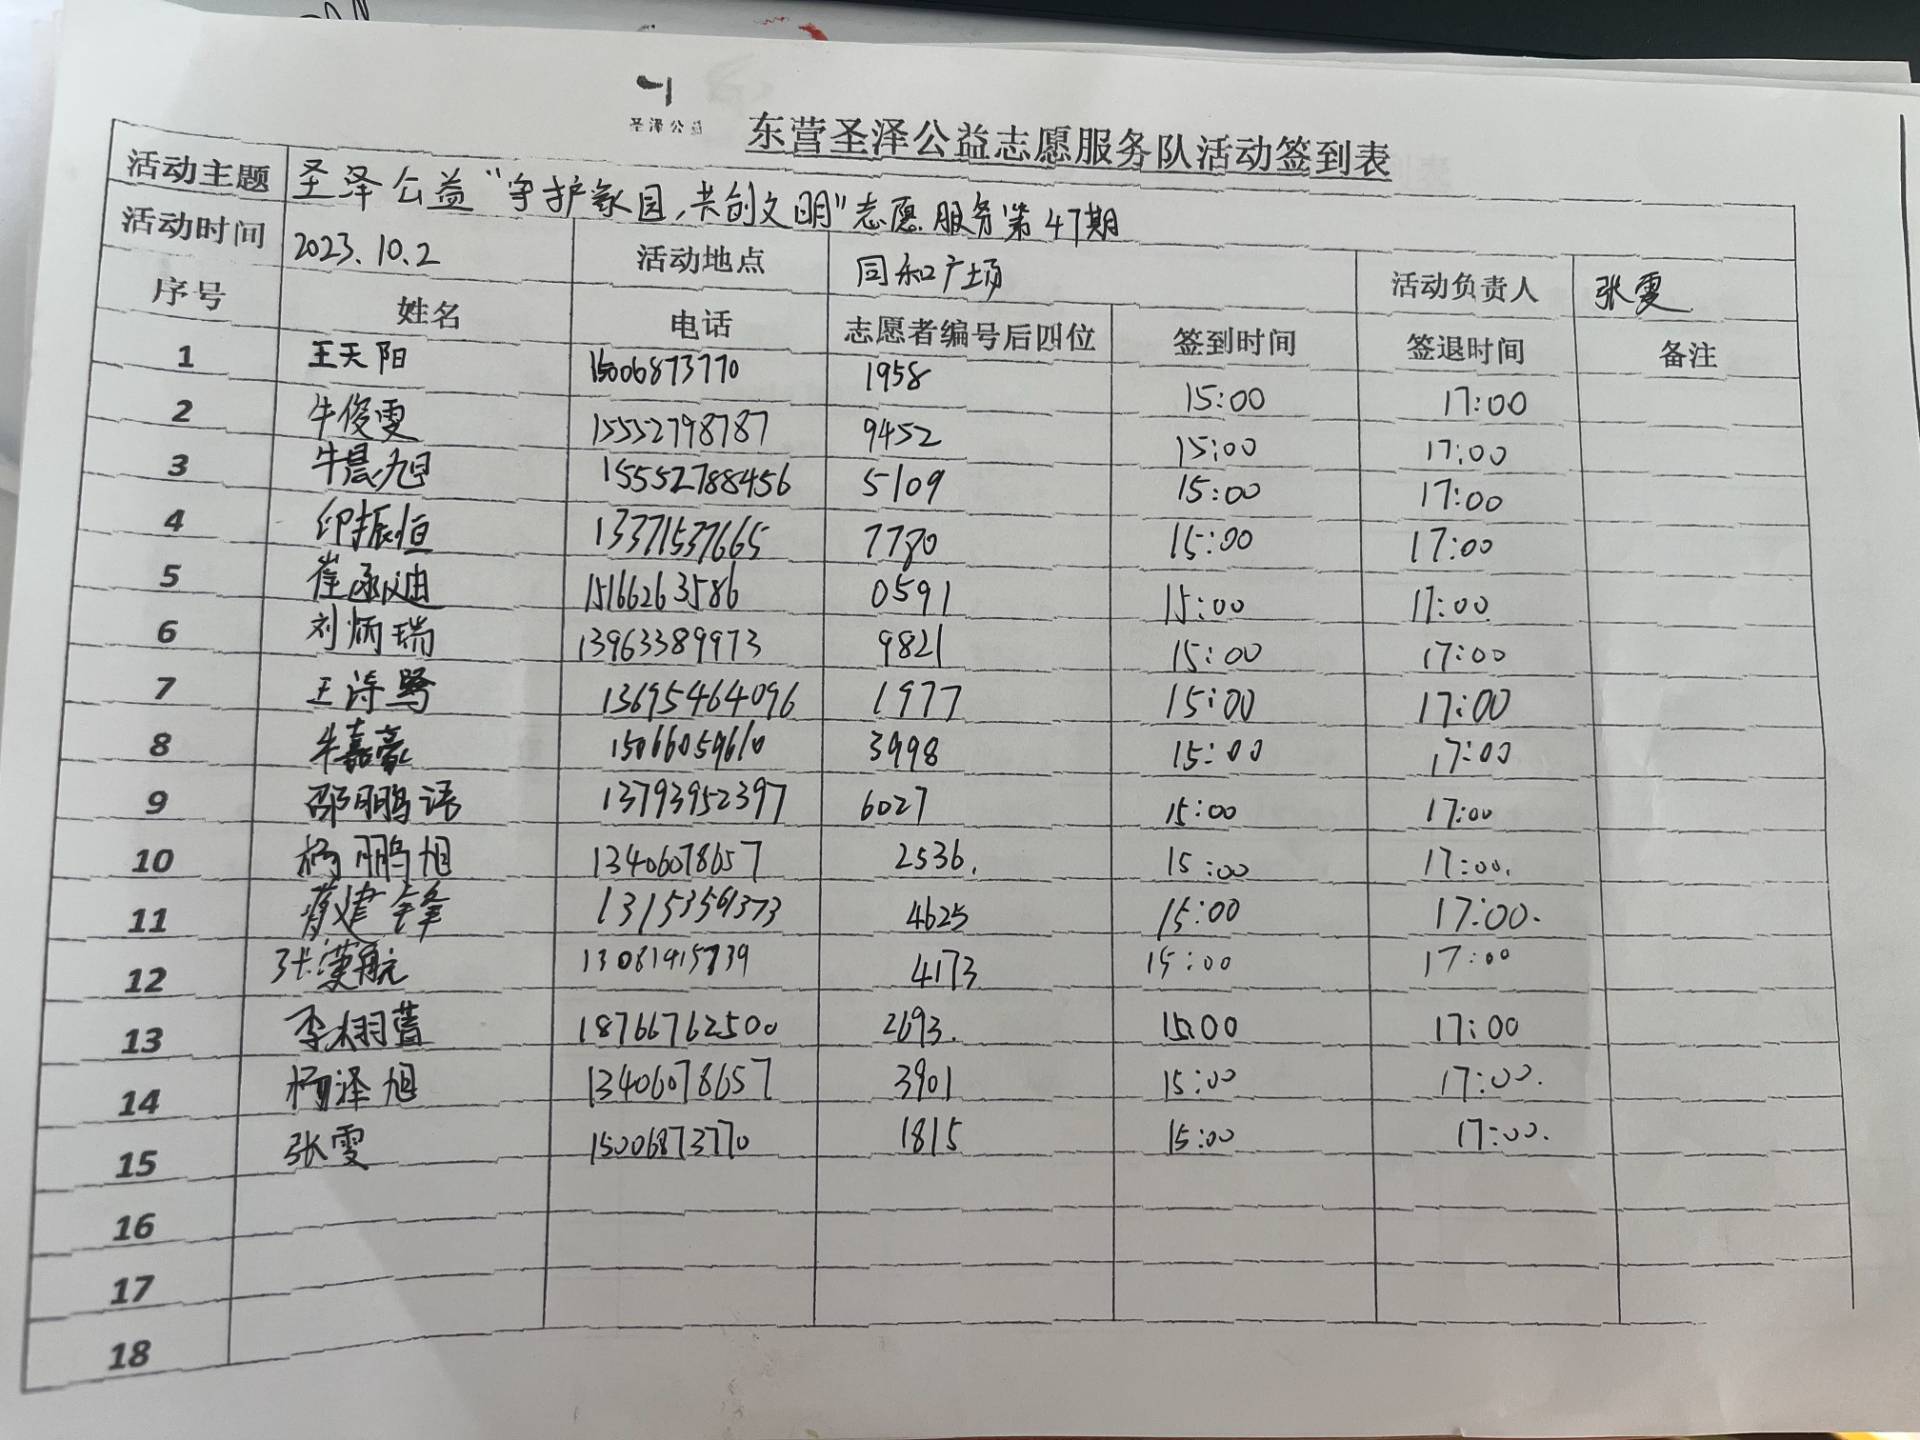 圣泽公益
东营圣泽公益志愿服务队活动签到表
活动主题 圣泽公益“守护家园,共创文明”志愿服务第47期
活动时间 2023.10.2 活动地点 同和广场 活动负责人 张雯
序号 姓名 电话 志愿者编号后四位 签到时间 签退时间 备注
1 王天阳 15006873770 1958 15:00 17:00
2 牛俊雯 15552798787 9452 15:00 17:00
3 牛晨旭 15552788456 5109 15:00 17:00
4 印振恒 13371537665 7780 15:00 17:00
5 崔函迪 15166263586 0591 15:00 17:00
6 刘炳瑞 13963389973 9821 15:00 17:00
7 王诗鸳 13695464096 1977 15:00 17:00
8 牛嘉豪 15066059610 3998 15:00 17:00
9 邵鹏语 13793952397 6027 15:00 17:00
10 杨鹏旭 13406078657 2536. 15:00 17:00.
11 蒋建锋 13153561373 4625 15:00 17:00.
12 张蓂航 13081915739 4173 15:00 17:00
13 李栩萱 18766762500 2693. 15:00 17:00
14 杨泽旭 13406078657 3901 15:00 17:00.
15 张雯 15006873770 1815 15:00 17:00.
16
17
18